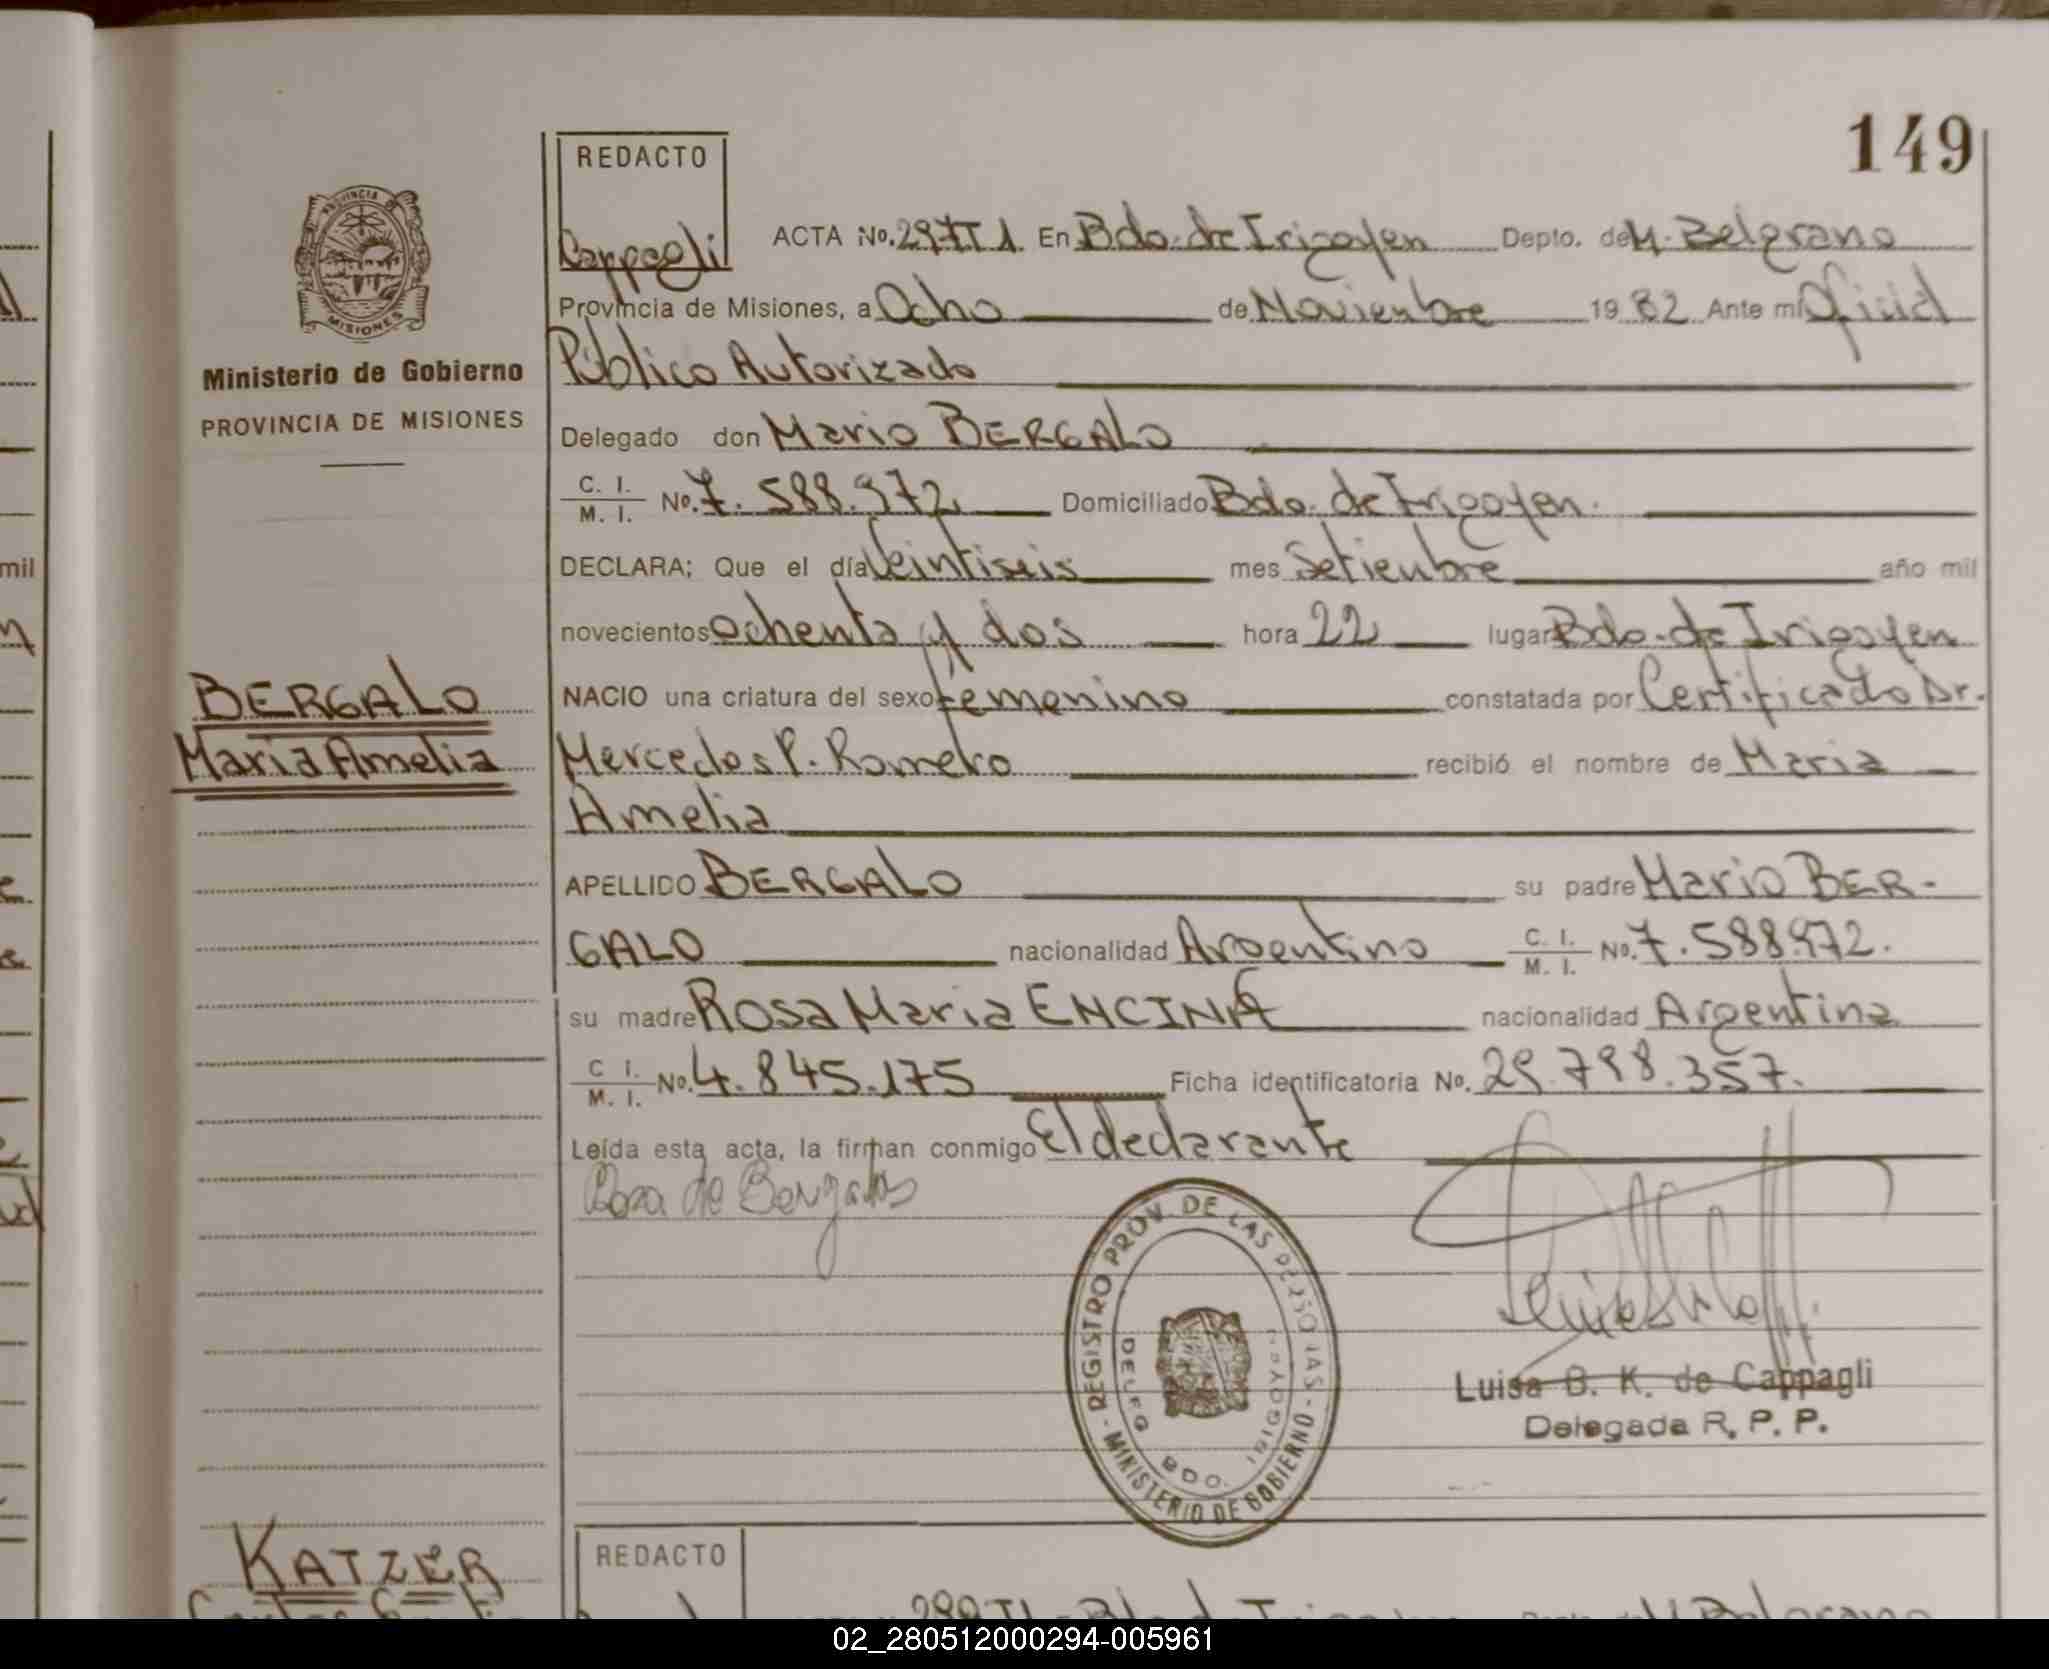 149
REDACTO
Cappagli
ACTA No. 297 T I. En Bdo. de Irigoyen Depto. de M. Belgrano
Provincia de Misiones, a Ocho de Noviembre 1982 Ante mi Oficial
Público Autorizado
Delegado don Mario BERGALO
C. I.
M. I. No. 7.588.972 Domiciliado Bdo. de Irigoyen.
DECLARA; Que el día Veintiseis mes Setiembre año mil
novecientos ochenta y dos hora 22 lugar Bdo. de Irigoyen
NACIO una criatura del sexo femenino constatada por Certificado Dr.
Mercedes P. Romero recibió el nombre de Maria
Amelia
APELLIDO BERGALO su padre Mario BER-
GALO nacionalidad Argentino C. I.
M. I. No. 7.588.972.
su madre Rosa Maria ENCINA nacionalidad Argentina
C I.
M. I. No. 4.845.175 Ficha identificatoria No. 29.798.357.
Leída esta acta, la firman conmigo El declarante
Rosa de Bergalo
REGISTRO PROV. DE LAS PERSONAS - MINISTERIO DE GOBIERNO -
DELEG BDO. IRIGOYEN
Luisa B. K. de Cappagli
Delegada R. P. P.
PROVINCIA DE
MISIONES
Ministerio de Gobierno
PROVINCIA DE MISIONES
BERGALO
Maria Amelia
KATZER
REDACTO
mil
02_280512000294-005961